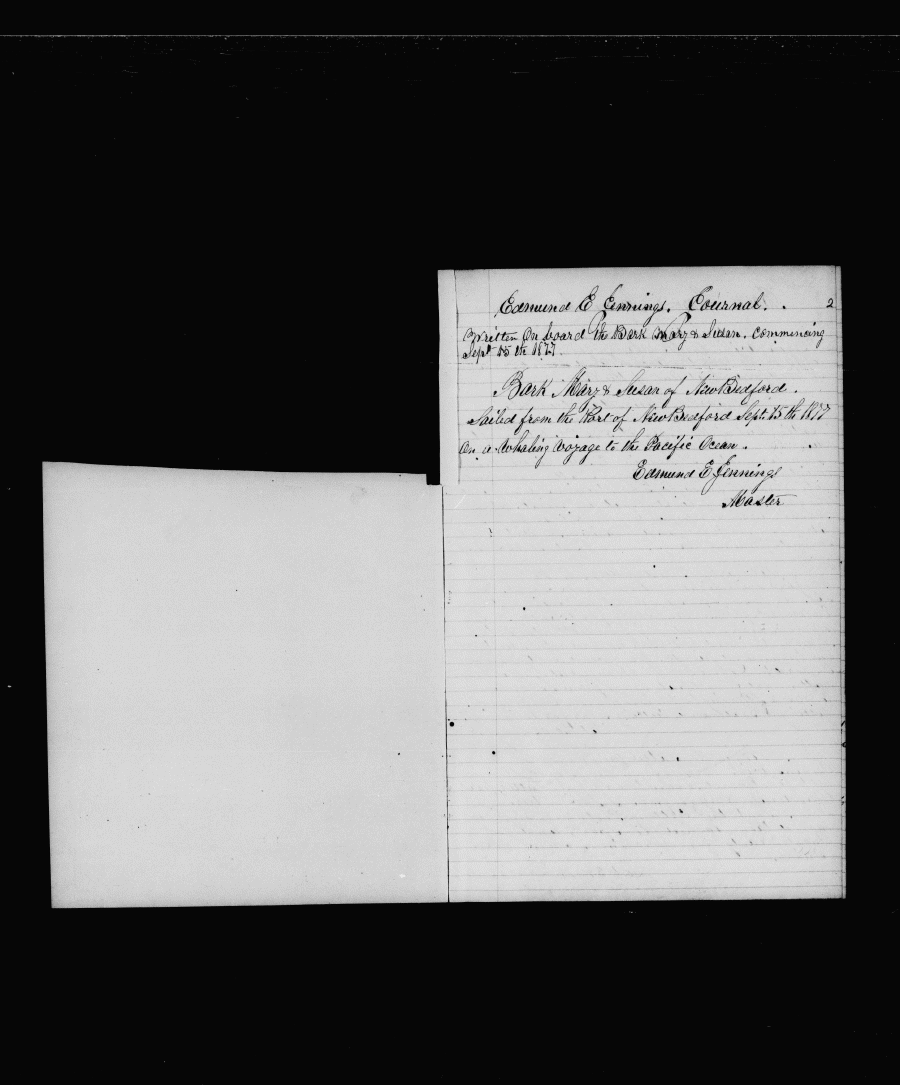 Edmund E Jennings. Journal. . 2
Written On board the Bark Mary & Susan. Commencing
Sept 15 th 1877.
Bark Mary & Susan of New Bedford.
Sailed from the Port of New Bedford Sept. 15 th 1877
On a Whaling Voyage to the Pacific Ocean.
Edmund E Jennings
Master